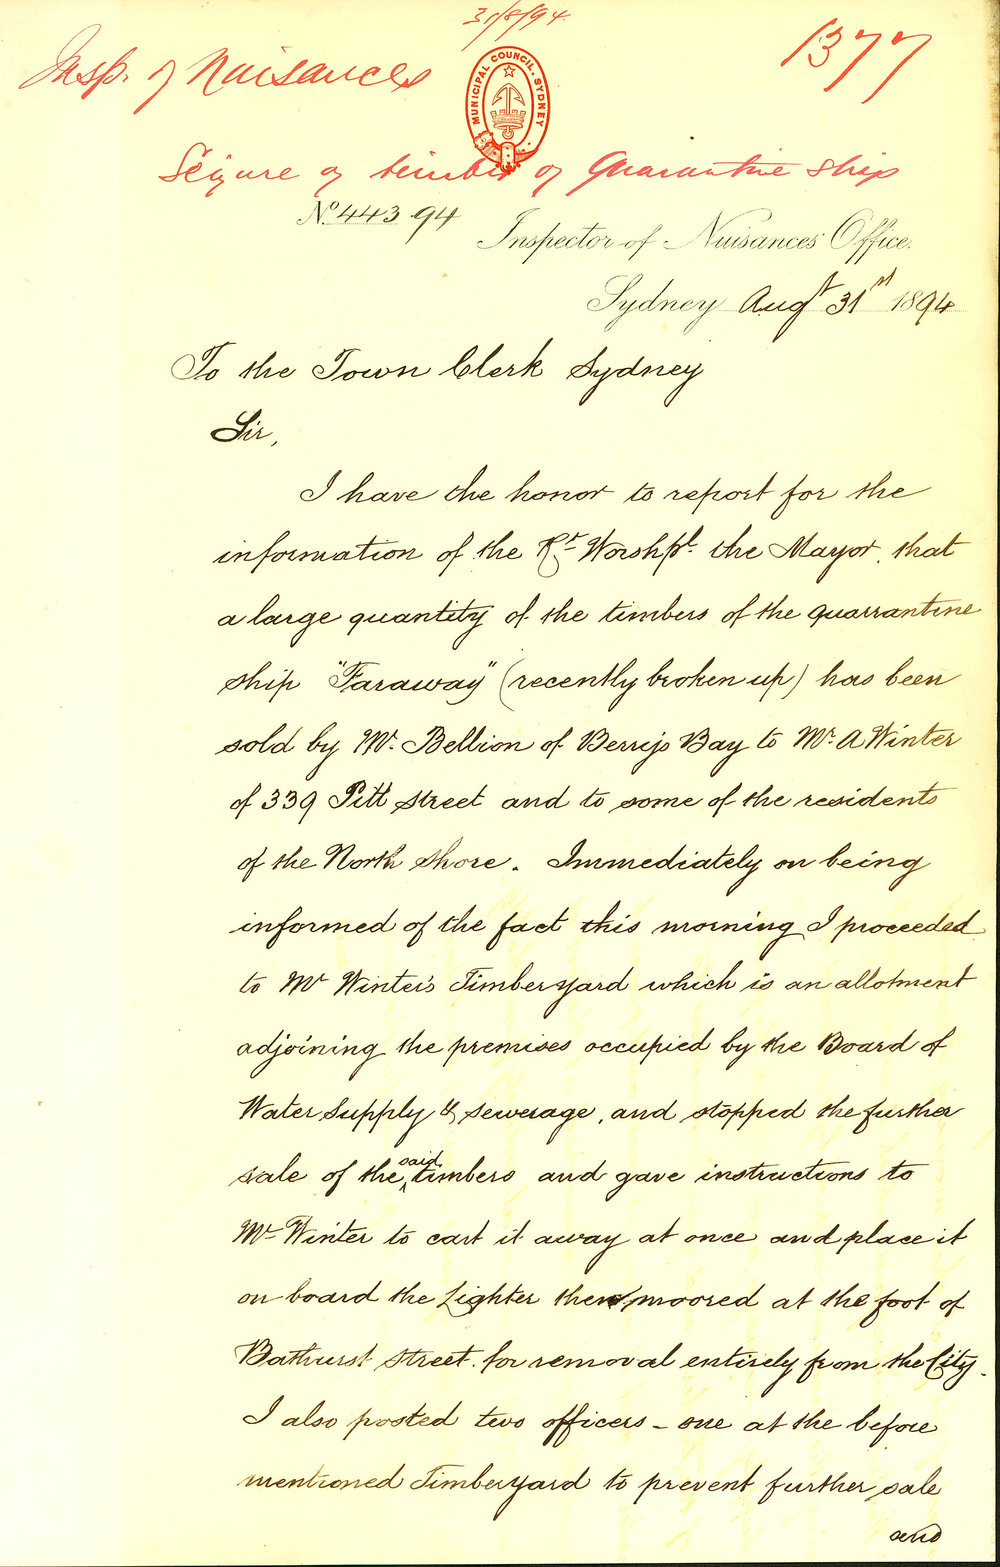 31/8/94.
Insp. of Nuisances
1377
MUNICIPAL COUNCIL. SYDNEY
Seizure of timber of Quarantine ship
No. 443 94
Inspector of Nuisances Office.
Sydney Augt 31st 1894
To the Town Clerk Sydney
Sir,
I have the honor to report for the
information of the Rt Worshpl. the Mayor, that
a large quantity of the timbers of the quarrantine
ship "Faraway" (recently broken up) has been
sold by Mr. Bellion of Berrys Bay to Mr. A Winter
of 339 Pitt Street and to some of the residents
of the North Shore. Immediately on being
informed of the fact this morning I proceeded
to Mr Winter's Timberyard which is an allotment
adjoining the premises occupied by the Board of
Water Supply & Sewerage, and stopped the further
sale of the said timbers and gave instructions to
Mr Winter to cart it away at once and place it
on board the Lighter then moored at the foot of
Bathurst Street for removal entirely from the City.
I also posted two officers - one at the before
mentioned Timberyard to prevent further sale
and